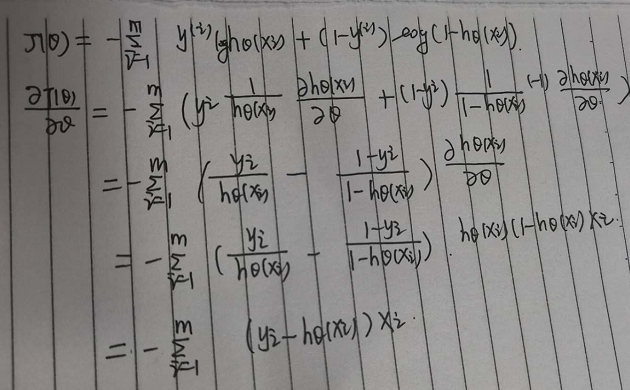 J(θ) = -∑_{i=1}^{m} y^{(i)} log hθ(xi) + (1-y^{(i)}) log(1-hθ(xi)).
∂J(θ)/∂θ = -∑_{i=1}^{m} (yi 1/hθ(xi) ∂hθ(xi)/∂θ + (1-yi) 1/(1-hθ(xi)) (-1) ∂hθ(xi)/∂θ)
= -∑_{i=1}^{m} (yi/hθ(xi) - (1-yi)/(1-hθ(xi))) ∂hθ(xi)/∂θ
= -∑_{i=1}^{m} (yi/hθ(xi) - (1-yi)/(1-hθ(xi))) · hθ(xi)(1-hθ(xi)) xi.
= -∑_{i=1}^{m} (yi - hθ(xi)) xi.